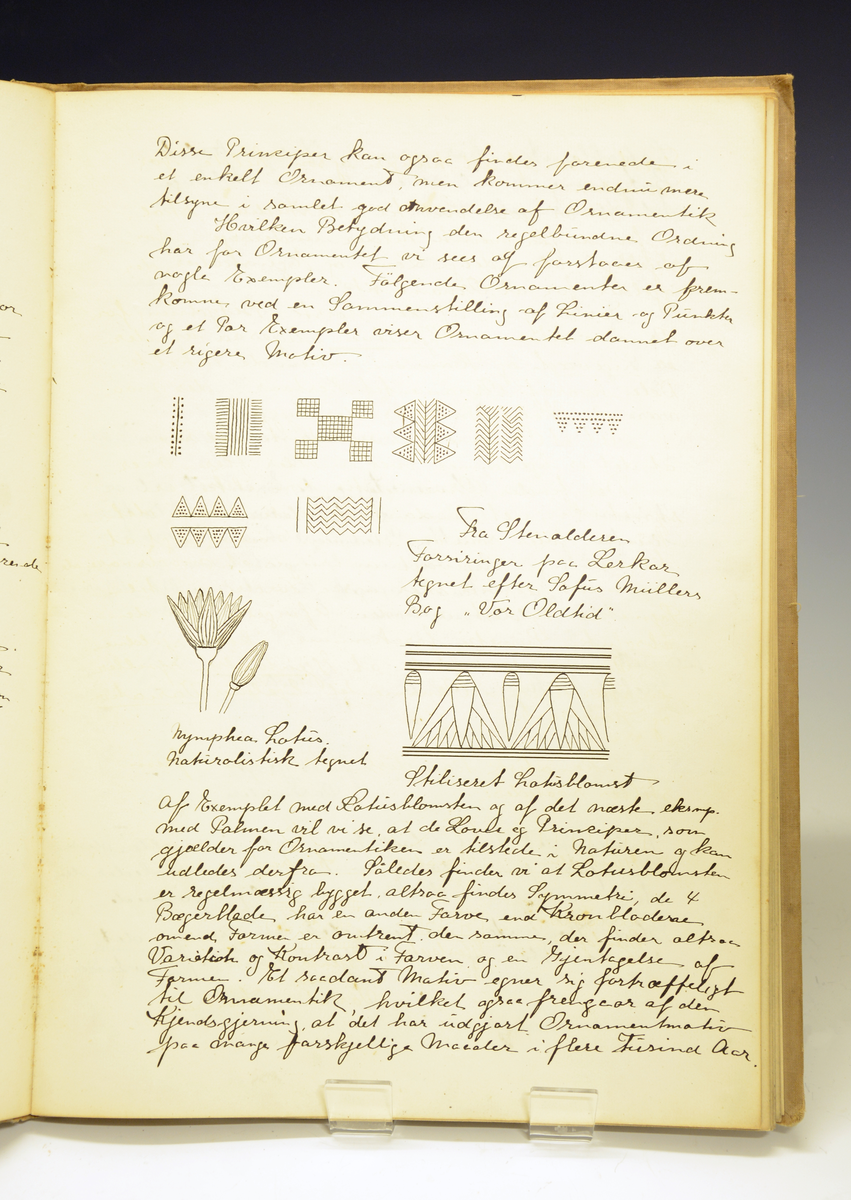 Disse Principer kan ogsaa findes forenede i
et enkelt Ornament, men kommer endnu mere
tilsyne i samlet god Anvendelse af Ornamentik
Hvilken Betydning den regelbundne Ordning
har for Ornamentet vi sees og forstaaes af
nogle Exempler. Følgende Ornamenter er frem-
komne ved en Sammenstilling af Linier og Punkter
og et Par Exempler viser Ornamentet dannet over
et rigere Motiv.
Fra Stenalderen
Forsiringer paa Lerkar
tegnet efter Sofus Müllers
Bog „Vor Oldtid"
Nymphea Lotus.
Naturalistisk tegnet
Stiliseret Lotusblomst
Af Exemplet med Lotusblomsten og af det næste eksmp.
med Palmen vil vi se, at de Love og Principer, som
gjælder for Ornamentiken er tilstede i Naturen og kan
udledes derfra. Således finder vi at Lotusblomsten
er regelmæssig bygget, altsaa findes Symmetri, de 4
Bægerblade har en anden Farve end Kronbladene
omend Formen er omtrent den samme, der finder altsaa
Variation og Kontrast i Farven og en Gjentagelse af
Formen. Et saadant Motiv egner sig fortræffeligt
til Ornamentik, hvilket ogsaa fremgaar af den
Kjendsgjerning, at det har udgjort Ornamentmotiv
paa mange forskjellige Maader i flere Tusind Aar.